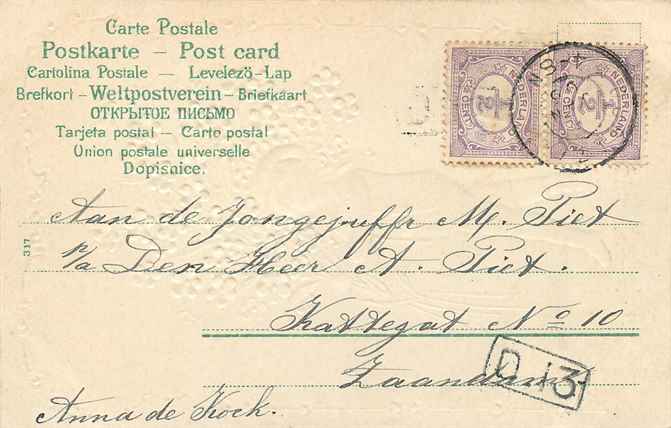 Carte Postale
Postkarte — Post card
Cartolina Postale — Levelező-Lap
Brefkort - Weltpostverein - Briefkaart
ОТКРЫТОЕ ПИСЬМО
Tarjeta postal — Carto postal
Union postale universelle
Dopisnice.
½ CENT NEDERLAND ½
½ CENT NEDERLAND ½
Aan de Jongejuffr M. Piet
p/a Den Heer A. Piet.
317
Kattegat No 10
Zaandam
D 13
Anna de Kock.